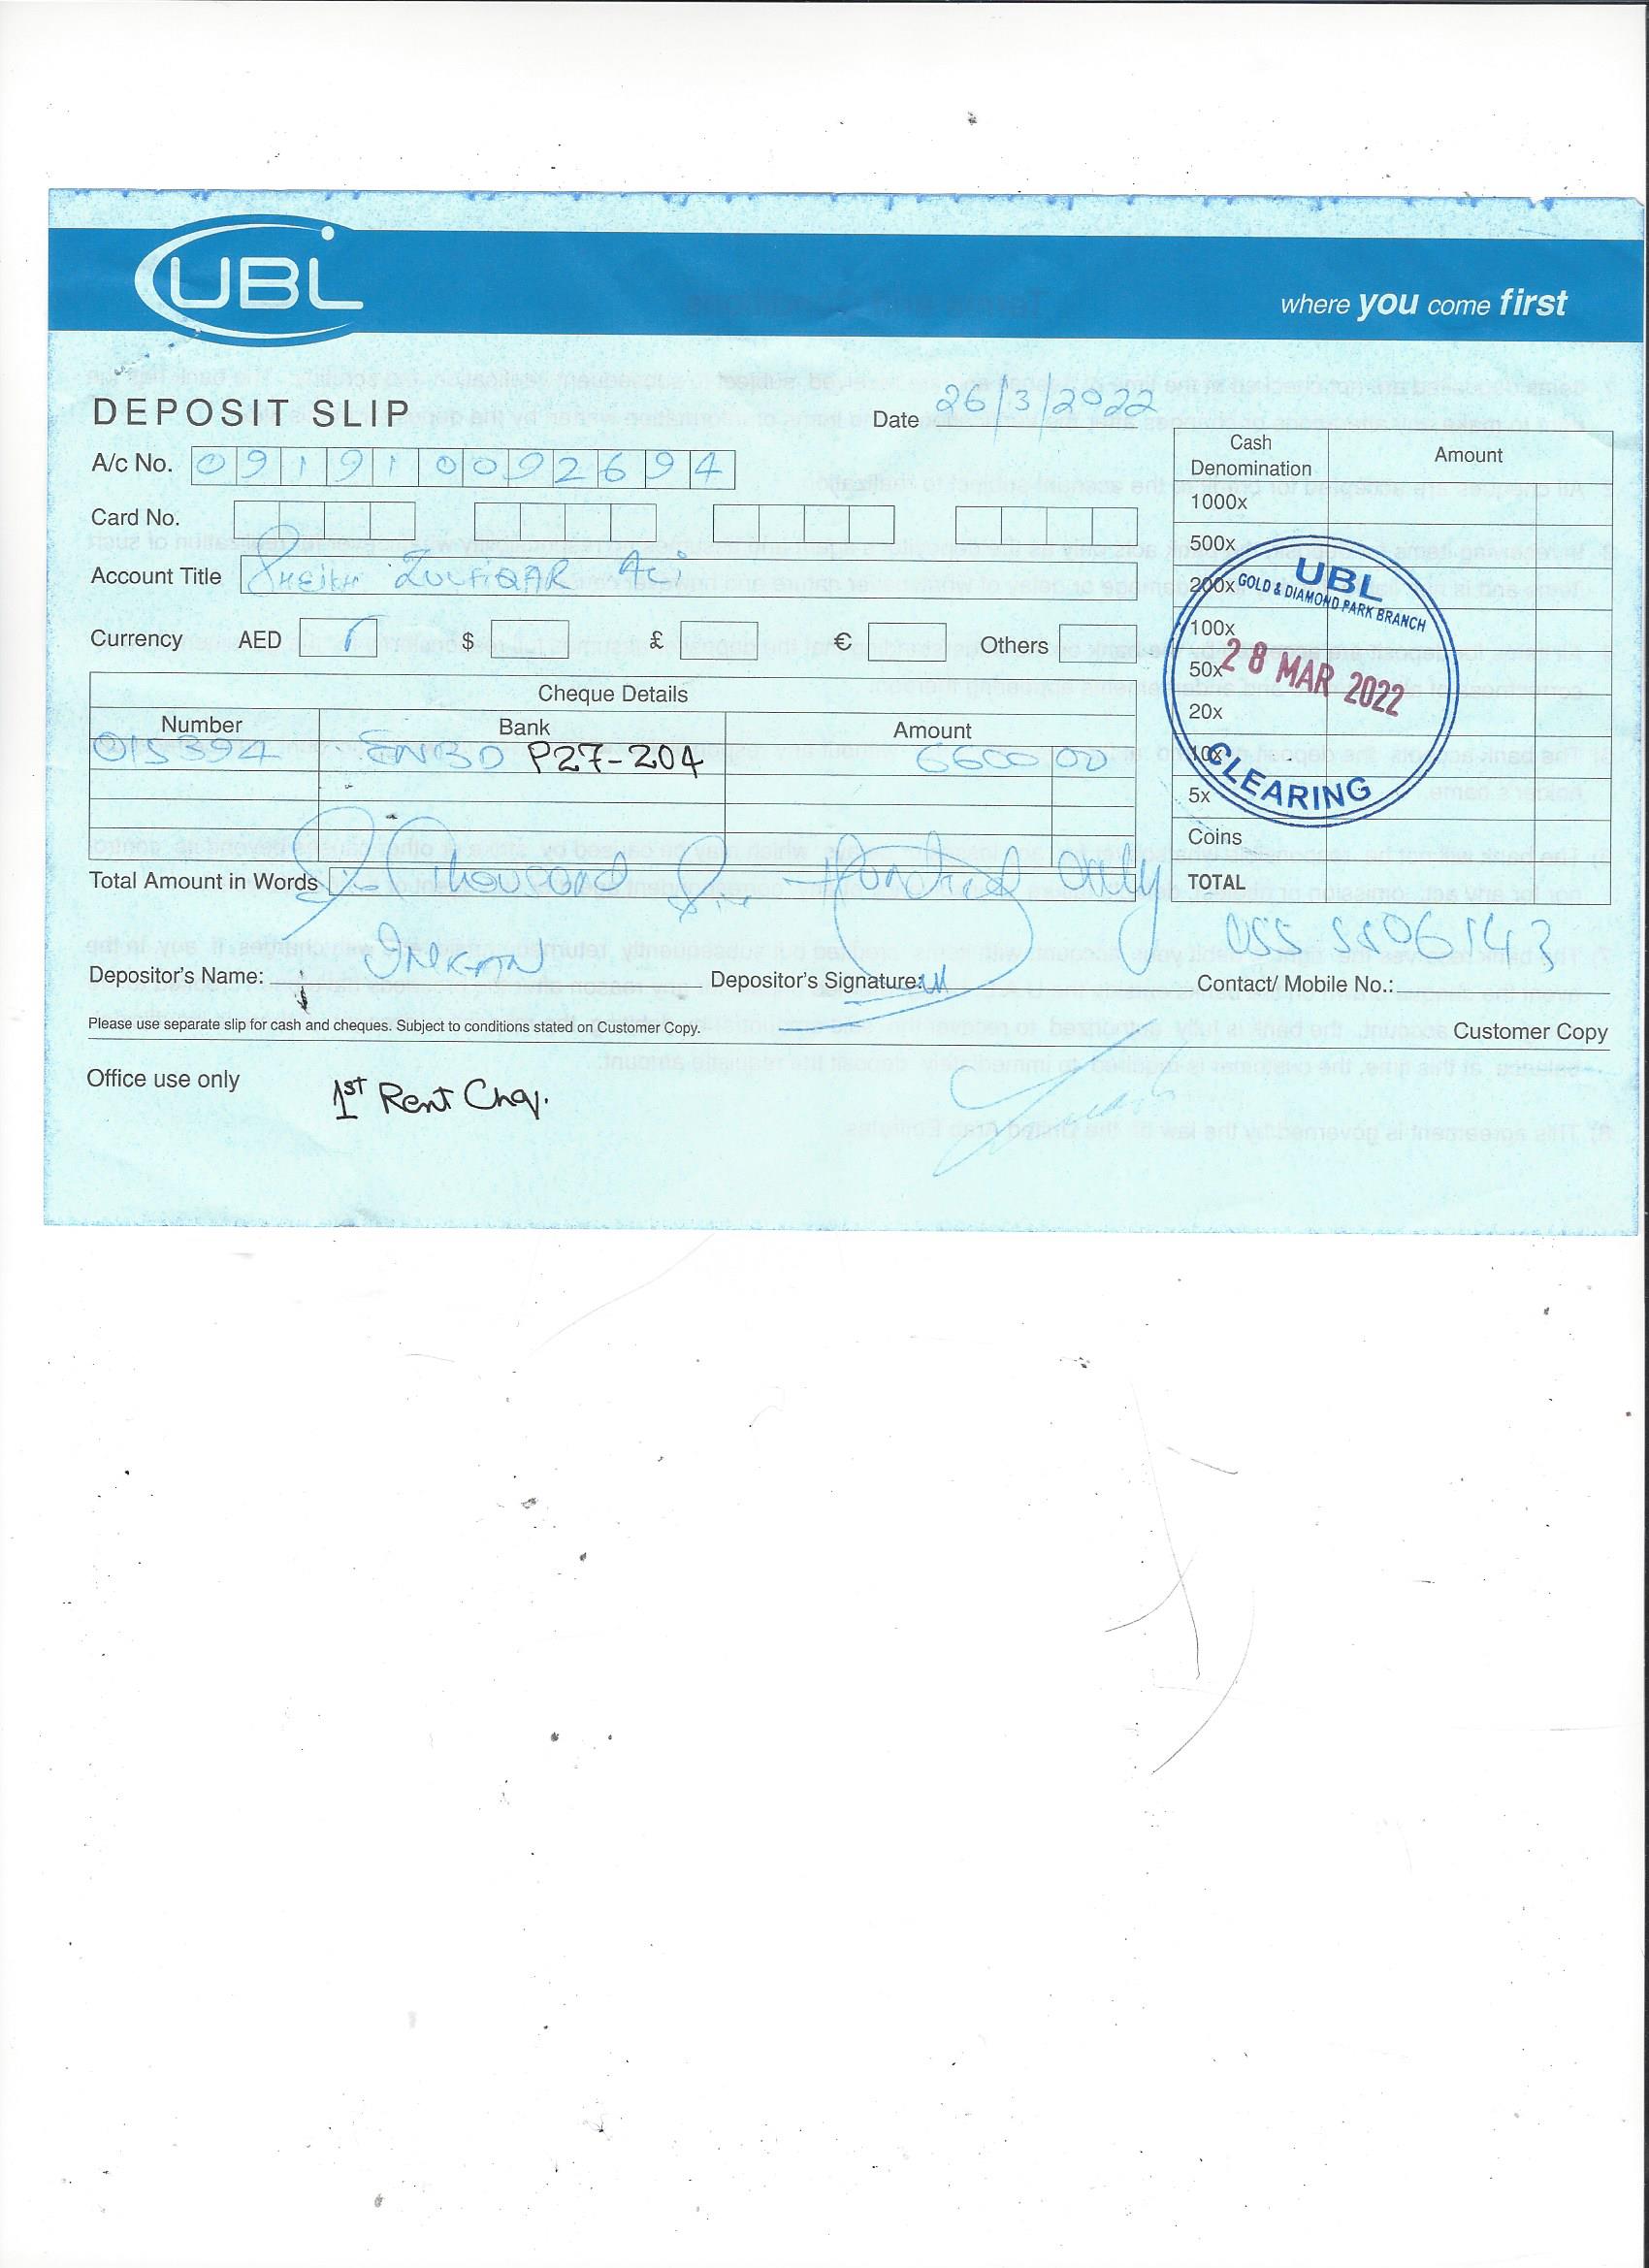 UBL
where you come first
DEPOSIT SLIP
Date 26/3/2022
A/c No. 091910092694
Card No.
Account Title Sheikh ZULFIQAR Ali
Currency AED $ £ € Others
Cheque Details
Number Bank Amount
015394 ENBD P27-204 6600 00
Total Amount in Words Six Thousand Six Hundred Only
Cash Denomination Amount
1000x
500x
200x
100x
50x
20x
10x
5x
Coins
TOTAL
UBL
GOLD & DIAMOND PARK BRANCH
28 MAR 2022
CLEARING
Depositor's Name: Depositor's Signature: Contact/ Mobile No.: 055 5506143
Please use separate slip for cash and cheques. Subject to conditions stated on Customer Copy. Customer Copy
Office use only 1st Rent Chq.